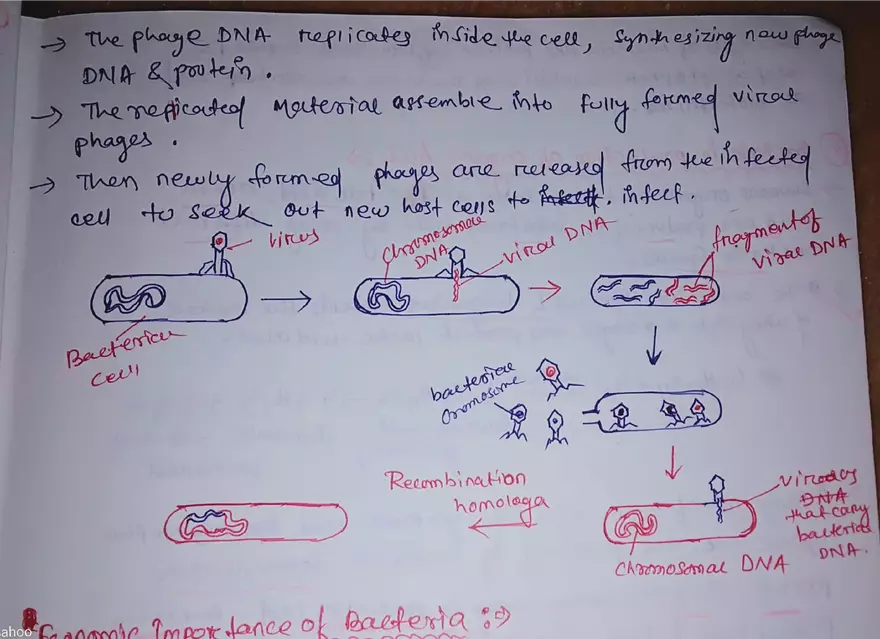 → The phage DNA replicates inside the cell, synthesizing new phage
DNA & protein.
→ The replicated Material assemble into fully formed viral
phages.
→ Then newly formed phages are released from the infected
cell to seek out new host cells to infect.
virus
Chromosomal
DNA
viral DNA
fragment of
viral DNA
Bacterial
cell
bacterial
Chromosome
Recombination
homologa
DNA
that cary
bacterial
DNA.
Chromosomal DNA
Economic Importance of Bacteria :⇒
ahoo